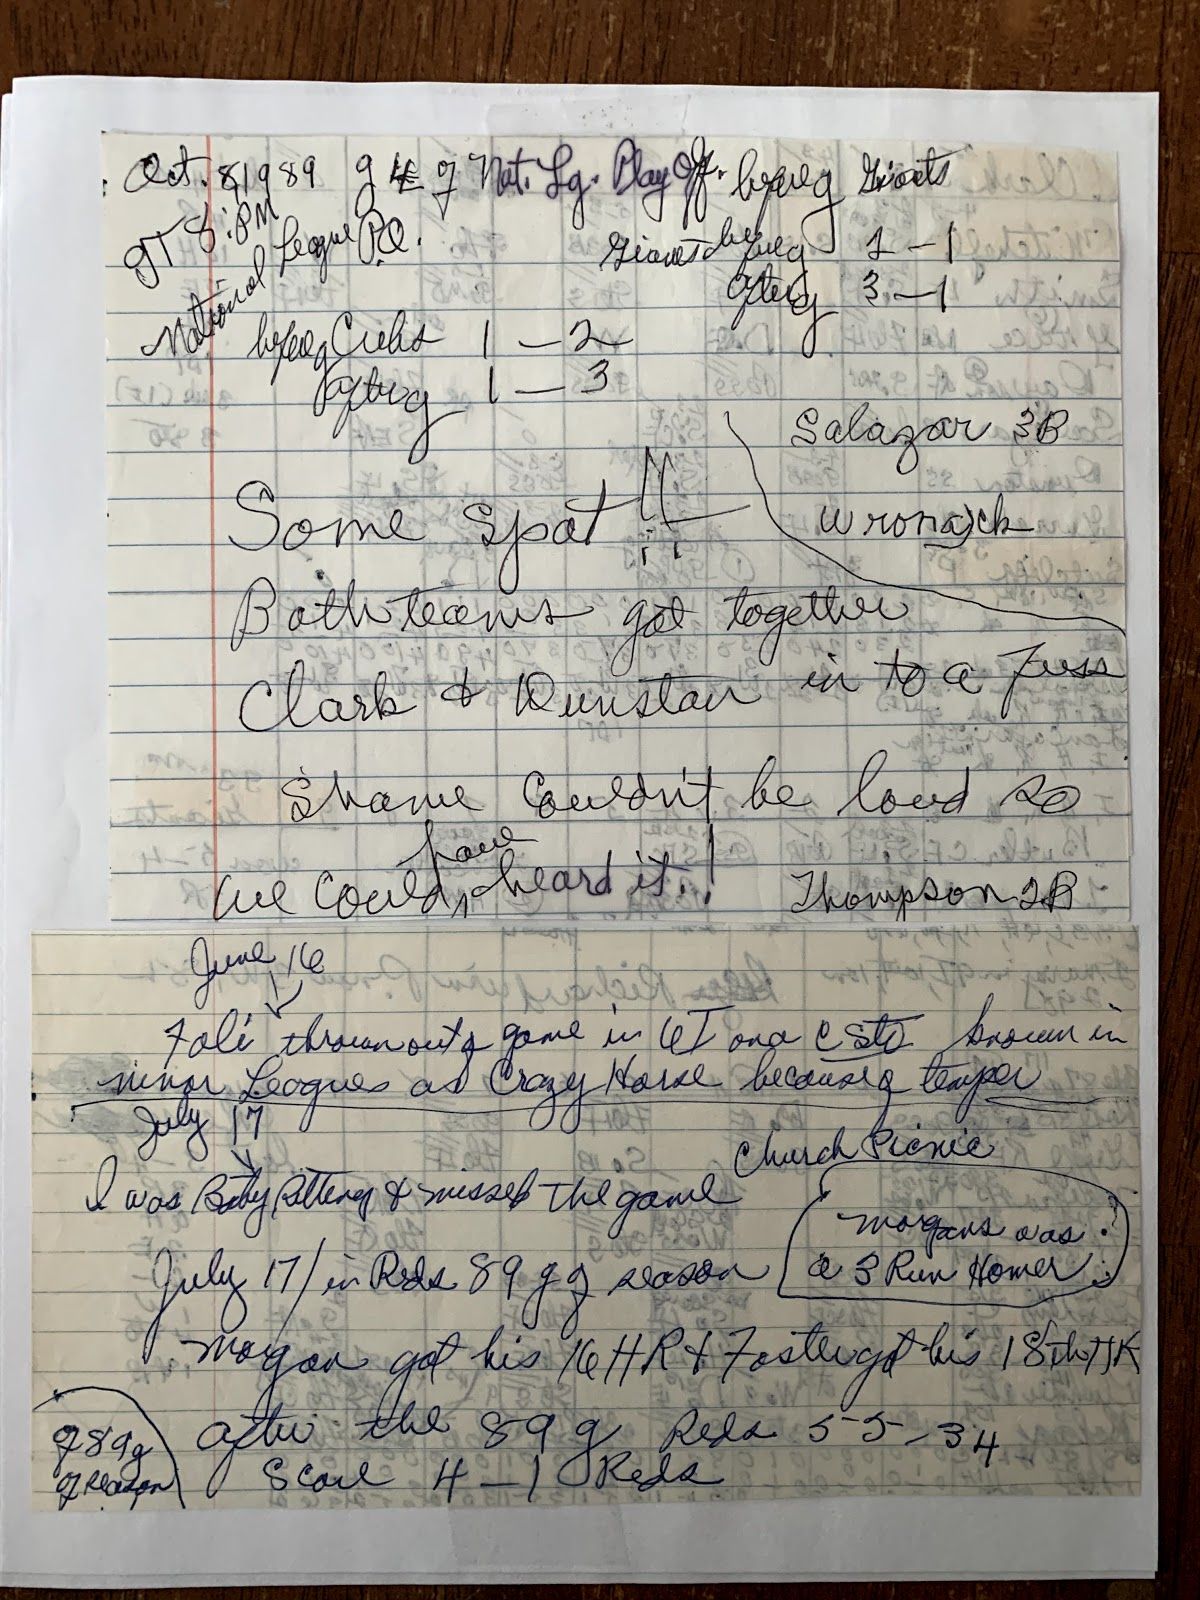 Oct. 8, 1989 g 4 of Nat. Lg. Play Off. before g Giants
GT 8:PM
National League P.O.
Giants before g 2 – 1
after g 3 – 1
before g Cubs 1 – 2
after g 1 – 3
Salazar 3B
Some spat!!
Wrona ch
Both teams got together
Clark & Dunston in to a Fuss
Shame couldn't be loud so
we could have heard it.!
Thompson 2B
June 16
Foli thrown out of game in 6I on a CSTO known in
minor Leagues as Crazy Horse because of temper
July 17
Church Picnic
I was Baby Sitting & missed the game
morgans was
a 3 Run Homer
July 17/ in Reds 89 g of season
morgan got his 16 HR & Foster got his 18th HR
g 89 g
of season
after the 89 g Reds 55-34
Score 4 – 1 Reds